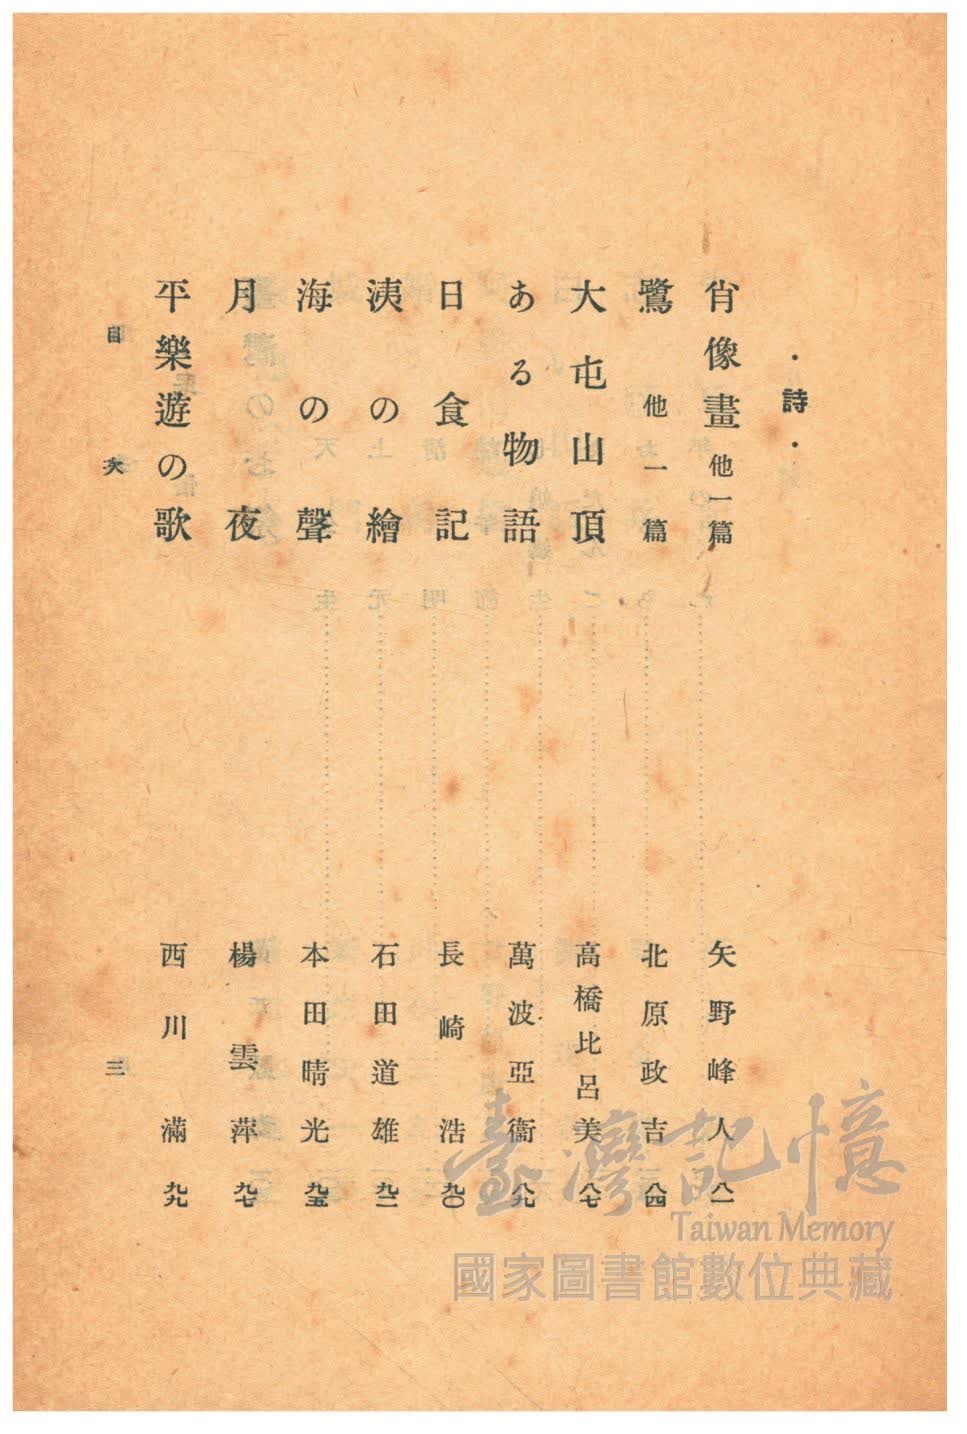 ・詩・
肖像畫 他一篇 矢野峰人 八一
鷺 他一篇 北原政吉 八四
大屯山頂 高橋比呂美 八七
ある物語 萬波亞衞 八九
日食記 長崎浩 九〇
洟の繪 石田道雄 九二
海の聲 本田晴光 九五
月夜 楊雲萍 九七
平樂遊の歌 西川滿 九九
目次 三
臺灣記憶
Taiwan Memory
國家圖書館數位典藏